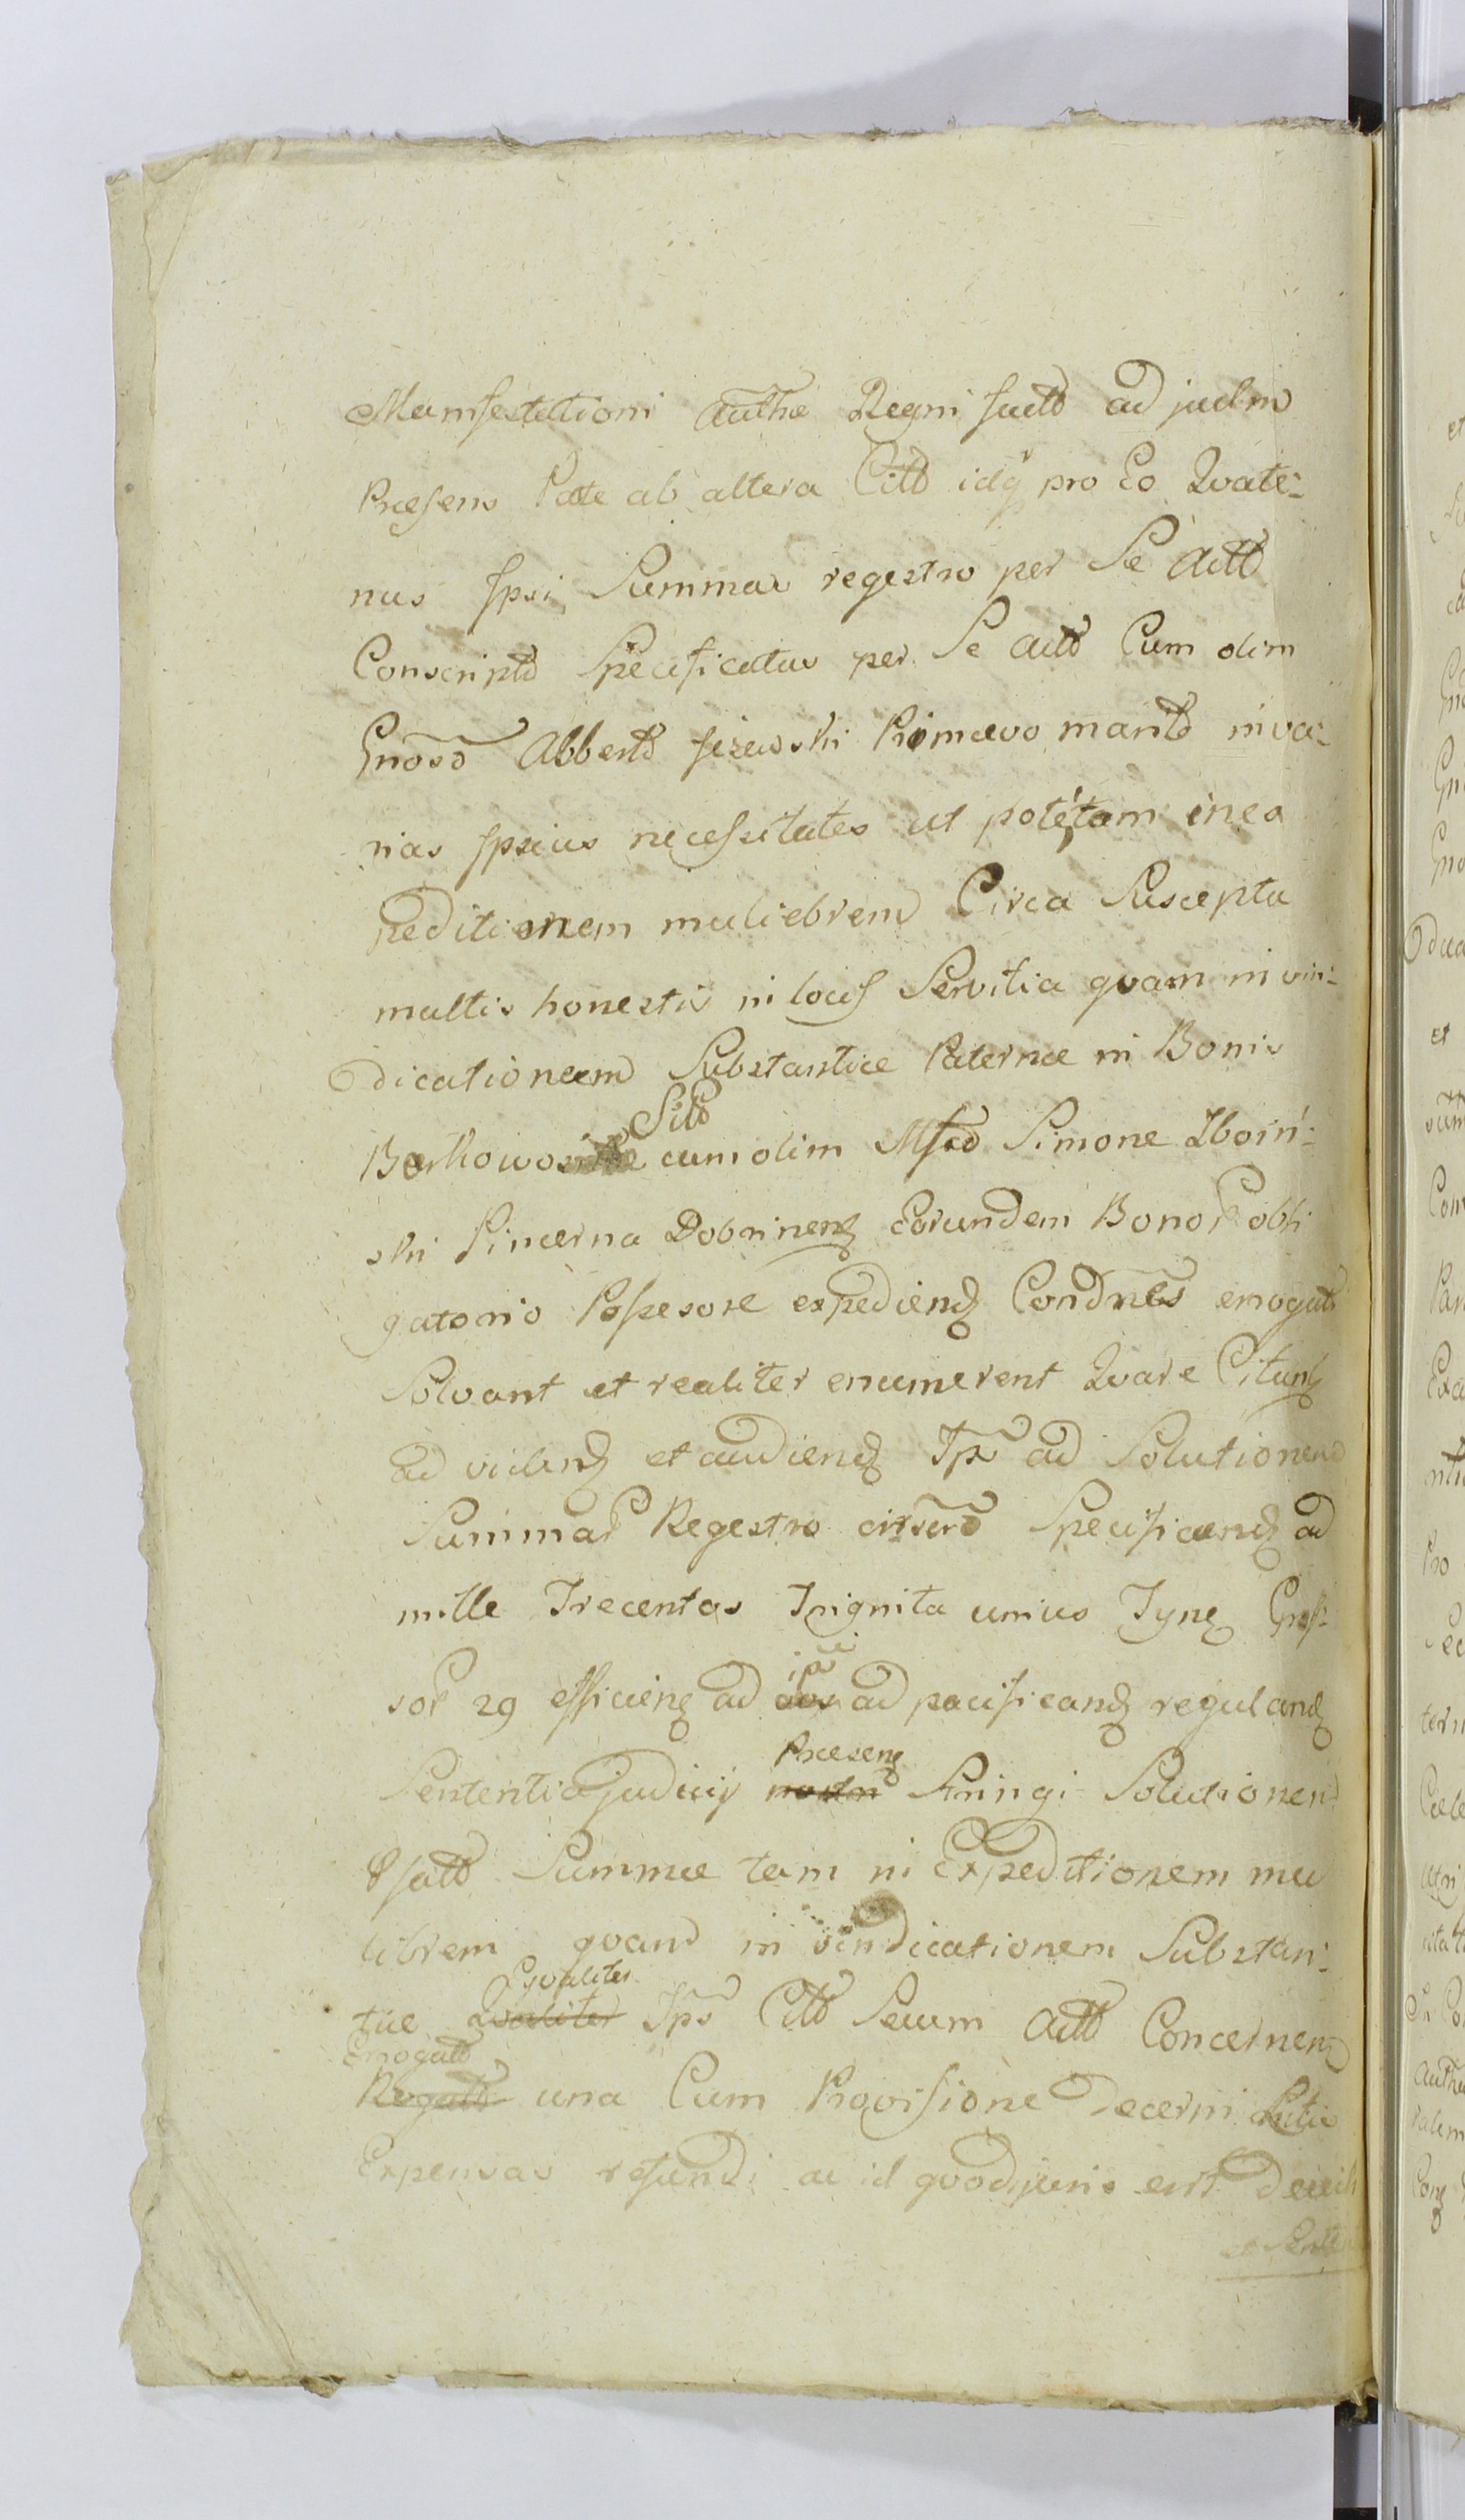 Manifestationi Authæ Regni facto ad judm
Præsens Parte ab altera Citt idq pro Eo Quate-
nus Ipsi Summas regestro per Se Actt
Conscripto Specificatas per Se Actt Cum olim
Gnoso Alberto Jezewski Primævo marito in va-
rias Ipsius necessitates ut pote tam in ex
peditionem muliebrem Circa Suscepta
multis honestis in locis Servitia quam in vin-
dicationem Substantiæ Paternæ in Bonis
Borkowo Sitt cum olim Mfco Simone Zboin-
ski Pincerna Dobrinen Eorundem Bonor obli
gatorio Possesore expedien Condnes erogatt
Solvant et realiter enumerent Quare Citan
ad viden et audien Ips ad Solutionem
Summar Regestro Specifican ad
mille Trecentos Triginta unius Tyn Gros-
sor 29 efficien ad ips ad pacifican regulan
Sententia Judicij Præsen Astringi Solutionem
Psatt Summæ tam in Expeditionem mu
librem quam in vindicationem Substan-
tiæ Qualiter Qualiter Ips Citt Secum Actt Concernen
Erogatt Rogatt una Cum Provisione Decerni Litis
Expensas refundi ac id quod juris erit